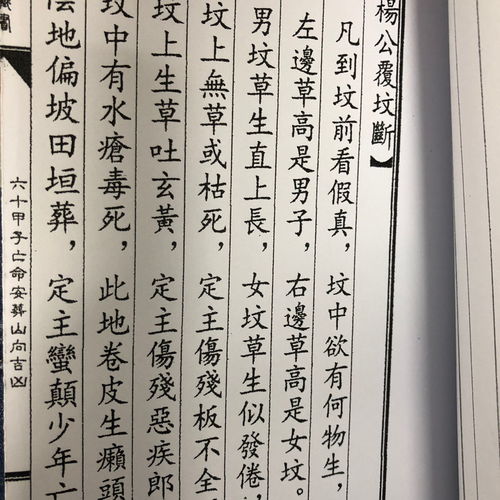 楊公覆坟斷】
凡到坟前看假真，坟中欲有何物生，
左邊草高是男子，右邊草高是女坟。
男坟草生直上長，女坟草生似發倦，
坟上無草或枯死，定主傷殘板不全
坟上生草吐玄黃，定主傷殘惡疾郎
坟中有水瘡毒死，此地卷皮生癩頭
地偏坡田垣葬，定主蠻顛少年亡
六十甲子亡命安葬山向吉凶